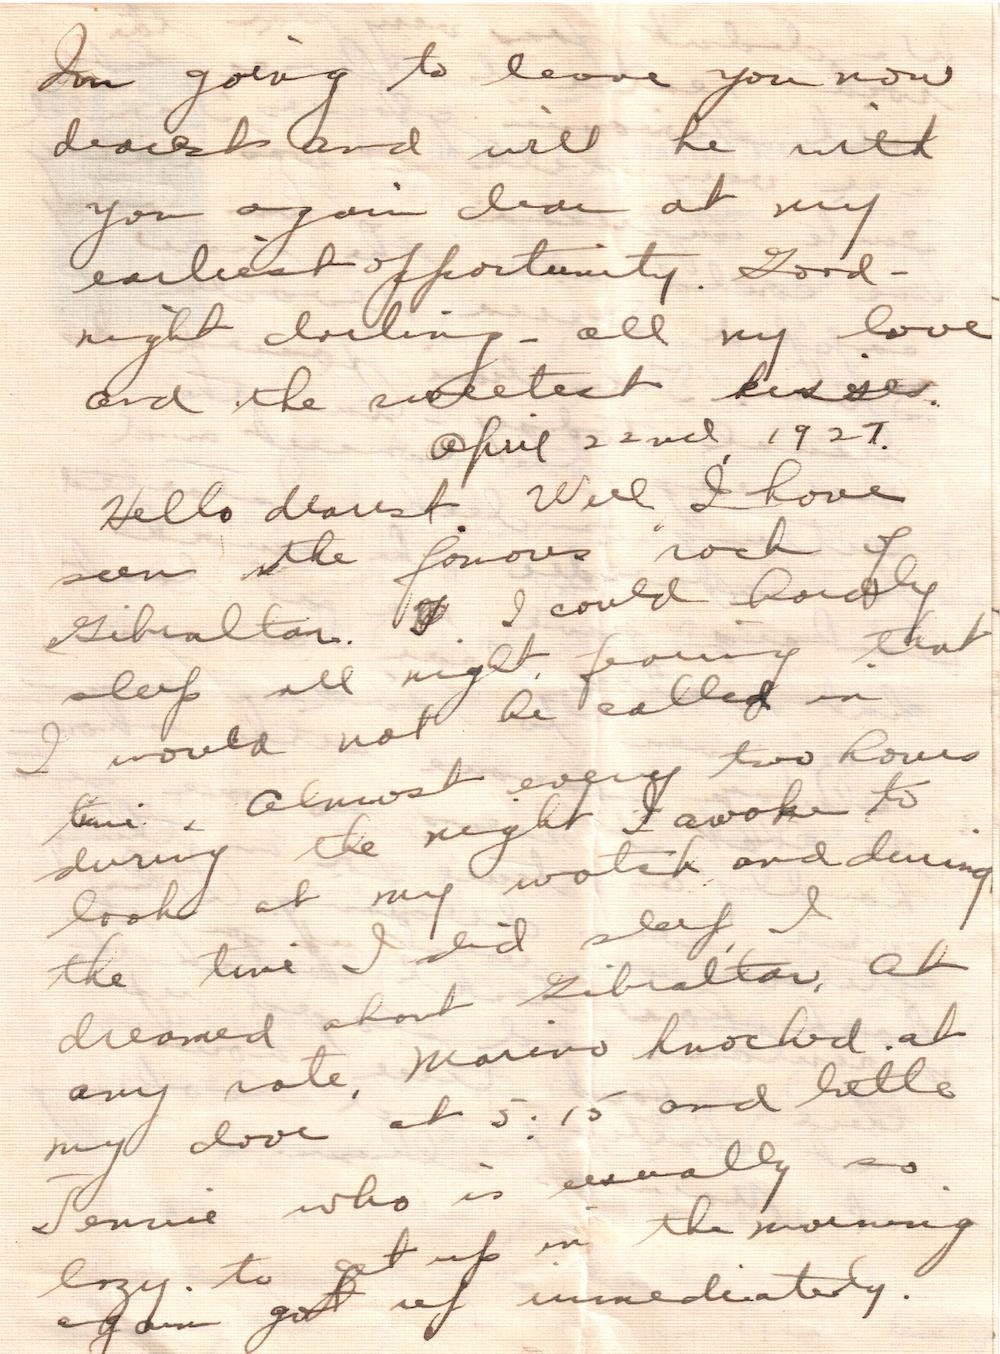 I'm going to leave you now
dearest and will be with
you again dear at my
earliest opportunity. Good-
night darling - all my love
and the sweetest kisses.
April 22nd, 1927.
Hello dearest. Well I have
seen the famous "rock of
Gibraltar. I could hardly
sleep all night, fearing that
I would not be called in
time. Almost every two hours
during the night I awoke to
look at my watch and during
the time I did sleep, I
dreamed about Gibraltar. At
any rate, Marino knocked at
my door at 5:15 and little
Jennie who is usually so
lazy to get up in the morning
again got up immediately.